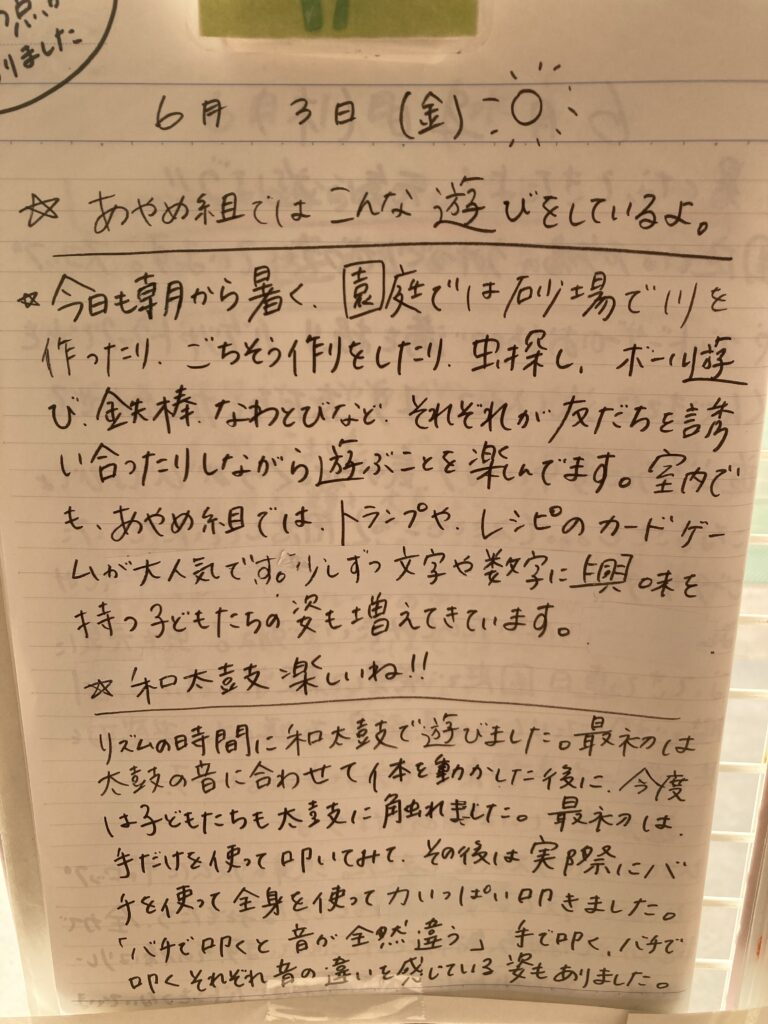 の点が
りました
6月 3日 (金)
☆ あやめ組ではこんな遊びをしているよ。
☆今日も朝から暑く、園庭では砂場で川を
作ったり、ごちそう作りをしたり、虫探し、ボール遊
び、鉄棒、なわとびなど、それぞれが友だちを誘
い合ったりしながら遊ぶことを楽しんでます。室内で
も、あやめ組では、トランプや、レシピのカードゲー
ムが大人気です。少しずつ文字や数字に興味を
持つ子どもたちの姿も増えてきています。
☆和太鼓楽しいね!!
リズムの時間に和太鼓で遊びました。最初は
太鼓の音に合わせて体を動かした後に、今度
は子どもたちも太鼓に触れました。最初は、
手だけを使って叩いてみて、その後は実際にバ
チを使って全身を使って力いっぱい叩きました。
「バチで叩くと音が全然違う」手で叩く、バチで
叩くそれぞれ音の違いを感じている姿もありました。